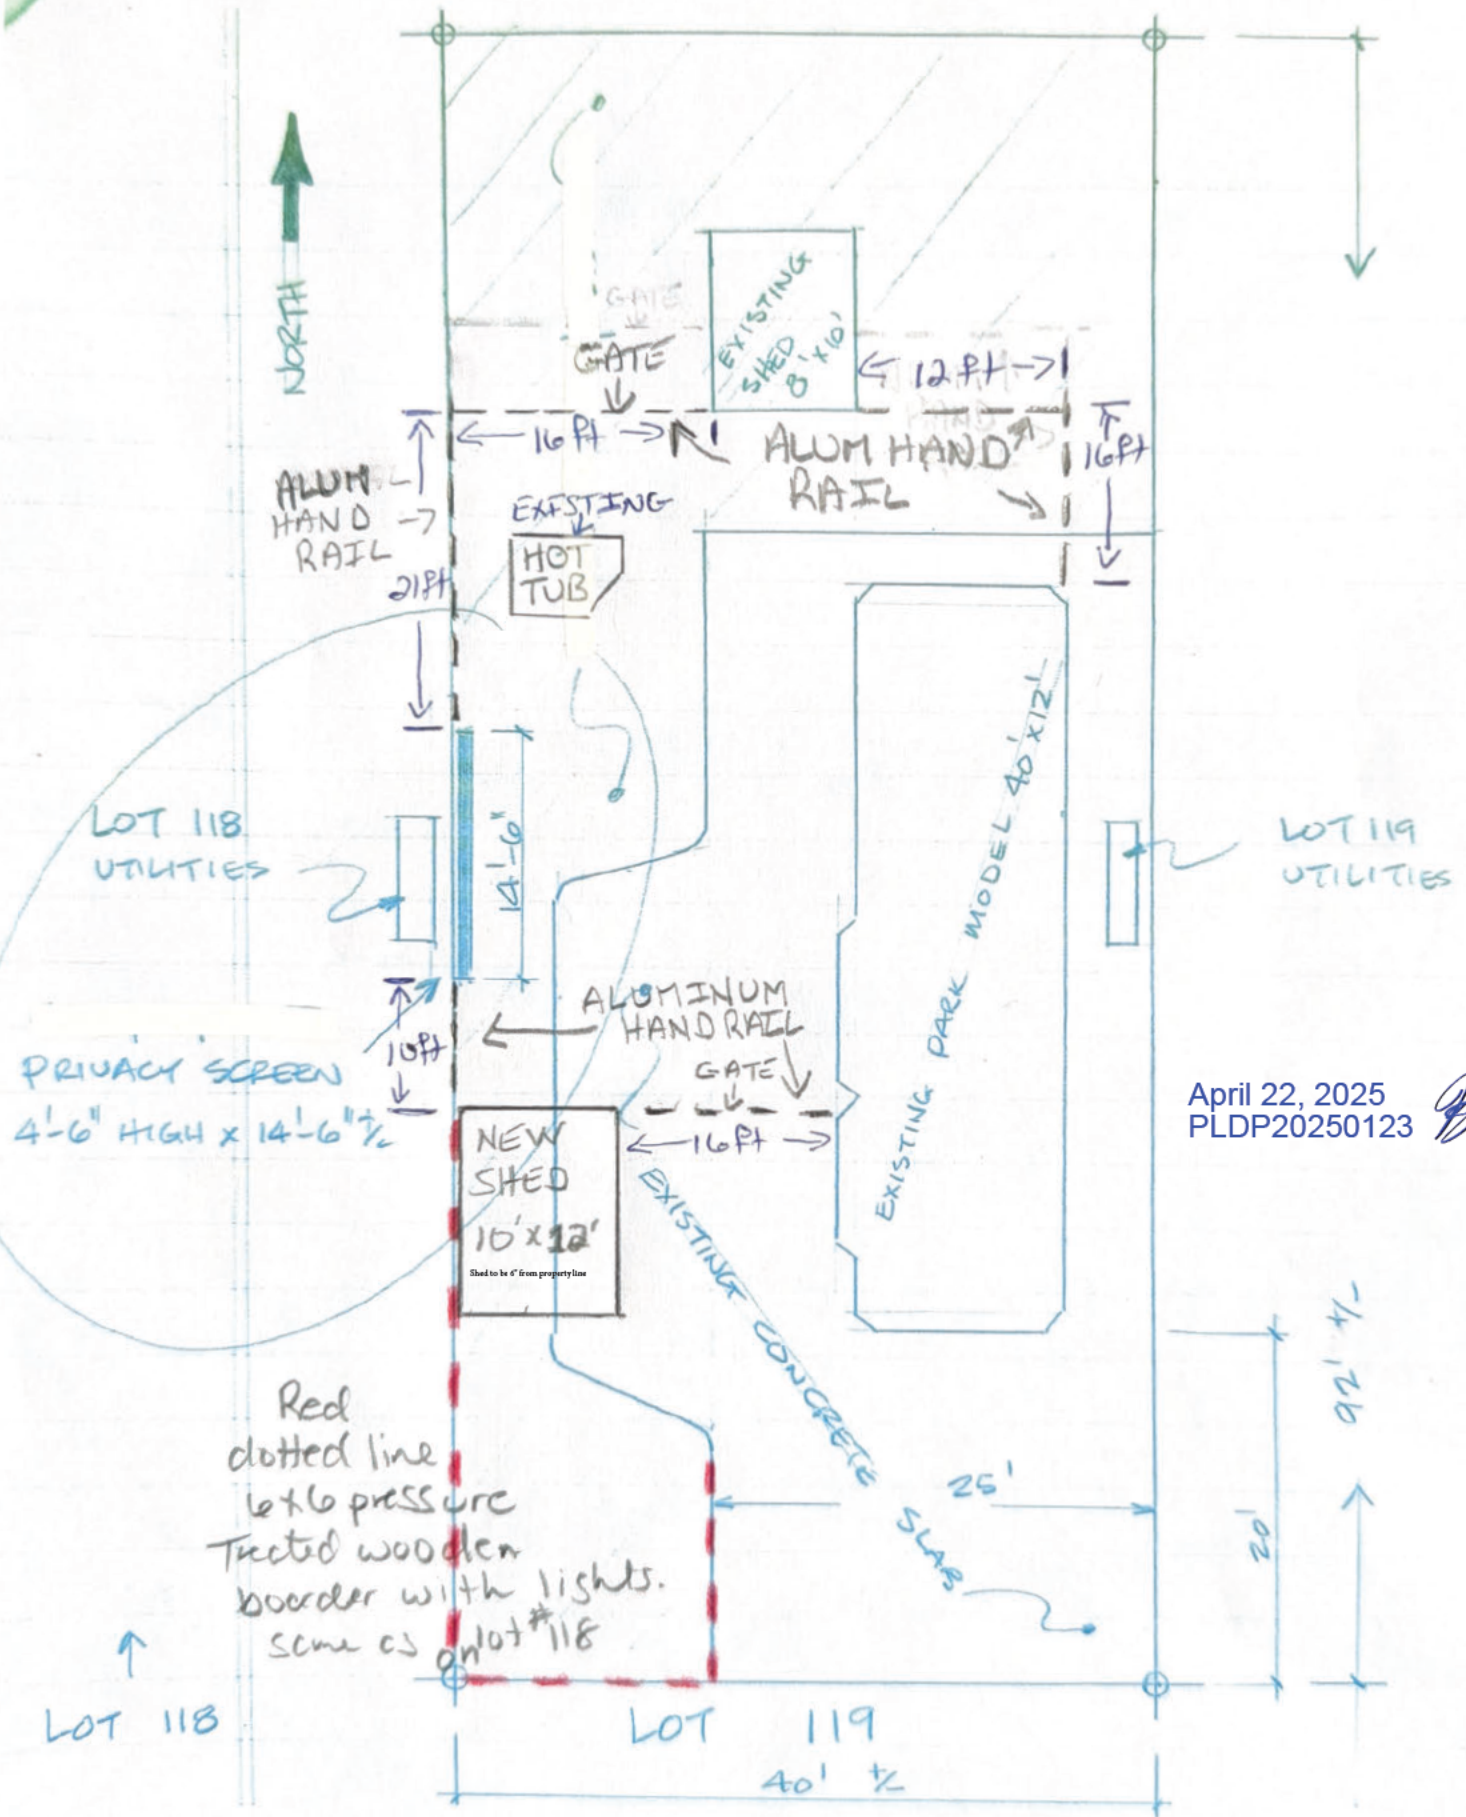 NORTH
GATE
GATE
EXISTING
SHED
8'x10'
12ft
16ft
ALUM HAND
RAIL
16ft
ALUM.
HAND
RAIL
21ft
EXISTING
HOT
TUB
LOT 118
UTILITIES
14'-6"
EXISTING PARK MODEL 40'x12'
LOT 119
UTILITIES
ALUMINUM
HANDRAIL
GATE
10ft
PRIVACY SCREEN
4'-6" HIGH x 14'-6" +/-
16ft
NEW
SHED
10'x12'
Shed to be 6" from property line
April 22, 2025
PLDP20250123
EXISTING CONCRETE SLAB
92' +/-
20'
25'
Red
dotted line
6x6 pressure
Trected wooden
boarder with lights.
same as on lot #118
LOT 118
LOT 119
40' +/-